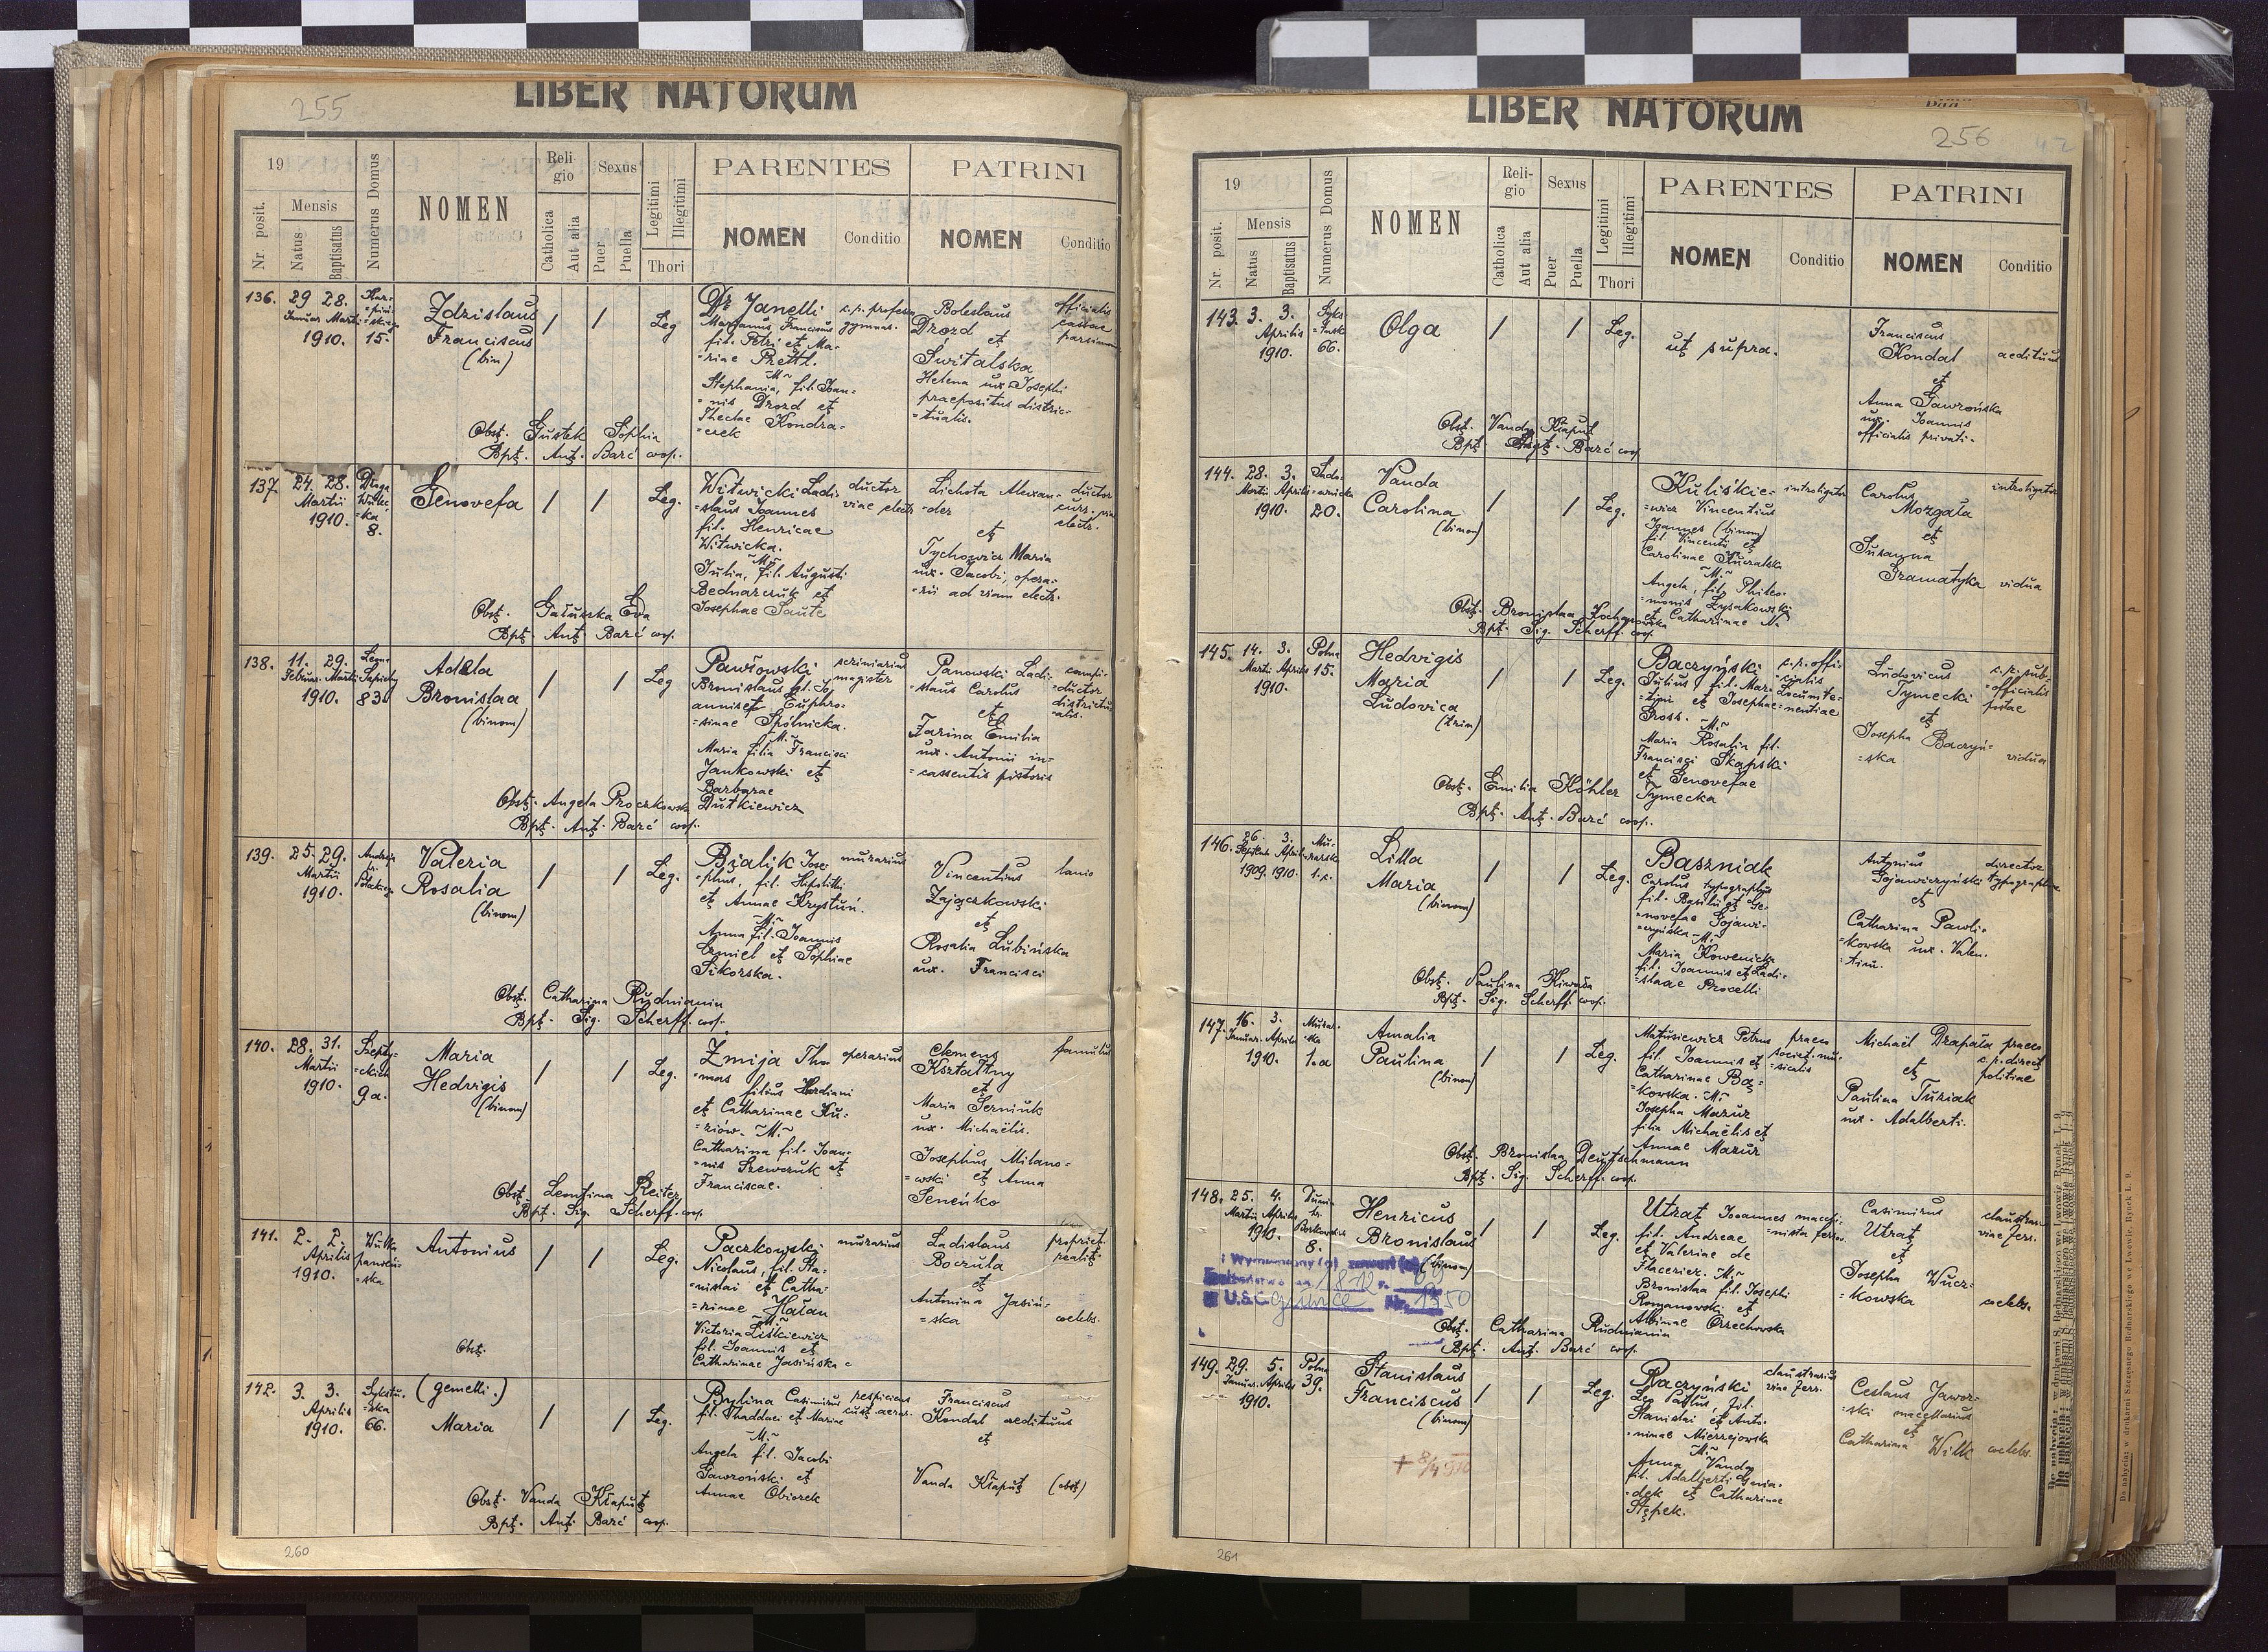 255
LIBER NATORUM
19
Mensis
Nr posit.
Natus
Baptisatus
Numerus Domus
NOMEN
Reli-
gio
Catholica
Aut alia
Sexus
Puer
Puella
Legitimi
Illegitimi
Thori
PARENTES
NOMEN
Conditio
PATRINI
NOMEN
Conditio
136.
29 28.
Januar Martii
1910.
15.
Zdzislaus
Franciscus
(bin)
/
/
Leg
Dr Janelli
Marianus Franciscus
fil. Petri et Ma-
=riae Prettl.
~M~
Stephania, fil. Joan-
=nis Drozd et
Theclae Kondra-
=czek
c.r. profesor
gymnas.
Boleslaus
Drozd
et
Świtalska
Helena ux. Josephi
praepositus distric-
=tualis.
officialis
cassae
parsimon
Obst. Gustek Sophia
Bpt. Ant. Barć coop.
137.
24. 28.
Martii
1910.
Droga
Wulec-
=ka
8.
Genovefa
/
/
Leg.
Witwicki Ladi-
=slaus Joannes
fil. Henricae
Witwicka.
~M~
Julia, fil. Augusti
Bednarczuk et
Josephae Saute
ductor
viae electr
Lichota Alexan-
=der
et
Tychowicz Maria
ux. Jacobi, opera-
=rii ad viam electr.
ductor
curr. viae
electr.
Obst. Gałuszka Eva
Bpt. Ant. Barć coop.
138.
11. 29.
Februar. Martii
1910.
Leona
Sapiehy
83
Adela
Bronislaa
(binom)
/
/
Leg
Pawłowski
Bronislaus fil. Jo
annis et Euphro-
=sinae Spólnicka.
~M~
Maria filia Francisci
Jankowski et
Barbarae
Dutkiewicz
scriniarius
magister
Panowski Ladi-
=slaus Carolus
et
Zarina Emilia
ux. Antonii in-
=cassentis pistoris
campi-
=ductor
districtu-
=alis.
Obst. Angela Proczkowska
Bpt. Ant. Barć coop.
139.
25. 29.
Martii
1910.
Andrzeja
Potockiego
Valeria
Rosalia
(binom)
/
/
Leg.
Bialik Jose-
=phus, fil. Hipolitti
et Annae Krystuń.
~M~
Anna fil. Joannis
Czmiel et Sophiae
Sikorska.
murarius
Vincentius
Zajączkowski
et
Rosalia Łubińska
ux. Francisci
lanio
Obst. Catharina Rudnianin
Bpt. Sig. Scherff. coop.
140.
28. 31.
Martii
1910.
Szepty-
=ckich
9a.
Maria
Hedvigis
(binom)
/
/
Leg.
Żmija Tho-
=mas filius Hordiani
et Catharinae Ku-
=ziów. ~M~
Catharina fil. Joan-
=nis Szewczuk et
Franciscae.
operarius
Clemens
Kształtny
et
Maria Serniuk
ux. Michaëlis.
Josephus Milano-
=wski et Anna
Seneńko
famulus
Obst. Leontina Reiter
Bpt. Sig. Scherff. coop.
141.
2. 2.
Aprilis
1910.
Wulka
panień-
=ska
Antonius
/
/
Leg.
Paczkowski
Nicolaus, fil. Sta-
=nislai et Catha-
=rinae Hałan
~M~
Victoria Liskiewicz
fil. Joannis et
Catharinae Jasińska
murarius
Ladislaus
Boczula
et
Antonina Jasiń-
=ska
propriet.
realit.
coelebs.
Obst.
142.
3. 3.
Aprilis
1910.
Sykstu-
=ska
66.
(gemelli.)
Maria
/
/
Leg.
Brylina Casimirus
fil. Thaddaei et Mariae
~M~
Angela fil. Jacobi
Gawroński et
Annae Obiorek
respiciens
cust. aerar.
Franciscus
Kondal aedituus
et
Vanda Kłaput (obst)
Obst. Vanda Kłaput
Bpt. Ant. Barć coop.
260
256
LIBER NATORUM
19
Mensis
Nr. posit.
Natus
Baptisatus
Numerus Domus
NOMEN
Reli-
gio
Catholica
Aut alia
Sexus
Puer
Puella
Legitimi
Illegitimi
Thori
PARENTES
NOMEN
Conditio
PATRINI
NOMEN
Conditio
143.
3. 3.
Aprilis
1910.
Syks-
=tusk
66.
Olga
/
/
Leg.
ut supra.
Franciscus
Kondal
et
Anna Gawrońska
ux. Joannis
officialis privati.
aedituus
Obst. Vanda Kłaput
Bpt. Ant. Barć coop.
144.
28. 3.
Martii Aprilis
1910.
Sado-
=wnicka
20.
Vanda
Carolina
(binom)
/
/
Leg.
Kuliśkie-
=wicz Vincentius
Joannes (binom)
fil. Vincentii et
Carolinae Kuczalska
~M~
Angela, fil. Phile-
=monis Łysakowski
et Catharinae N.
introligator
Carolus
Morgała
et
Susanna
Gramatyka
introligator
vidua
Obst. Bronislaa Kochanowska
Bpt. Sig. Scherff. coop.
145.
14. 3.
Martii Aprilis
1910.
Polna
15.
Hedvigis
Maria
Ludovica
(trin)
/
/
Leg.
Baczyński
Julius fil. Mar-
=tini et Josephae
Grosh. ~M~
Maria Rosalia fil.
Francisci Skapski
et Genovefae
Tymecka
c.r. offi-
=cialis
Locumte-
=nentiae
Ludovicus
Tymecki
et
Josepha Baczyń-
=ska
c.r. sub-
=officialis
postae
vidua
Obst. Emilia Köhler
Bpt. Ant. Barć coop.
146.
26. 3.
Septemb. Aprilis
1909. 1910.
Mu-
=rarska
Lilla
Maria
(binom)
/
/
Leg.
Baszniak
Carolus typographus
fil. Basilii et Ge-
=novefae Gojawi-
=czyńska ~M~
Maria Kowenicka
fil. Joannis et Ladi-
=slaae Procelli
Antonius
Gojawiczyński
et
Catharina Pawli-
=kowska ux. Valen-
=tini.
director
typographiae
Obst. Paulina Kiwała
Bpt. Sig. Scherff. coop.
147.
16. 3.
Januar. Aprilis
1910.
Murar-
=ska
1.a
Amalia
Paulina
(binom)
/
/
Leg.
Matusiewicz Petrus
fil. Joannis et
Catharinae Bą-
=kowska. ~M~
Josepha Mazur
filia Michaëlis et
Annae Mazur
praeco
societ. mu-
=sicalis
Michaël Drapała
et
Paulina Turiak
ux. Adalberti.
praeco
c.r. direct
politiae
Obst. Bronislaa Deutschmann
Bpt. Sig. Scherff. coop.
148.
25. 4.
Martii Aprilis
1910.
Dunin
Borkowskich
8.
Henricus
Bronislaus
(binom)
/
/
Leg.
Utrat Joannes
fil. Andreae
et Valeriae de
Flaceriez. ~M~
Bronislaa fil. Josephi
Romanowski et
Albinae Orzechowska
machi-
=nista ferrov.
Casimirus
Utrat
et
Josepha Wucz-
=kowska
claustrar.
viae ferr.
coelebs.
Wymieniony(a) zawarł(a)
U.S.C. Gliwice Nr. 1350
Obst. Catharina Rudnianin
Bpt. Ant. Barć coop.
149.
29. 5.
Januar. Aprilis
1910.
Polna
39.
Stanislaus
Franciscus
(binom)
/
/
Leg.
Raczyński
Leo Paulus, fil.
Stanislai et Anto-
=ninae Mierzejowska
~M~
Anna Vanda
fil. Adalberti Gnia-
=dek et Catharinae
Stępek.
claustrarius
viae ferr.
Ceslaus Jawor-
=ski macellarius
et
Catharina Wilk coelebs.
+ 8/4 910
261
Do nabycia: w drukarni Szczęsnego Bednarskiego we Lwowie, Rynek L. 9.